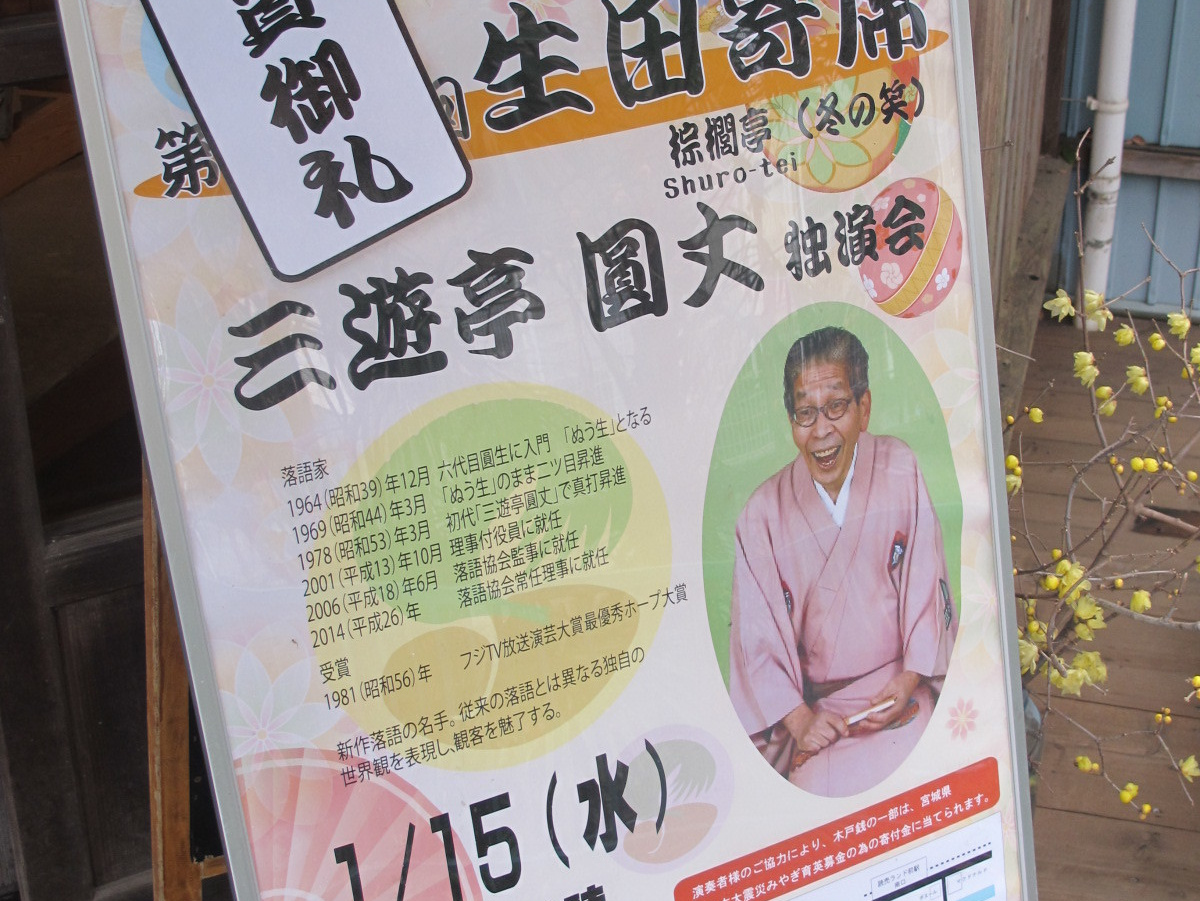 御礼
第
生田寄席
棕櫚亭（冬の笑）
Shuro-tei
三遊亭 圓丈 独演会
落語家
1964（昭和39）年12月 六代目圓生に入門 「ぬう生」となる
1969（昭和44）年3月 「ぬう生」のまま二ツ目昇進
1978（昭和53）年3月 初代「三遊亭圓丈」で真打昇進
2001（平成13）年10月 理事付役員に就任
2006（平成18）年6月 落語協会監事に就任
2014（平成26）年 落語協会常任理事に就任
受賞
1981（昭和56）年 フジTV放送演芸大賞最優秀ホープ大賞
新作落語の名手。従来の落語とは異なる独自の
世界観を表現し、観客を魅了する。
1/15（水）
演奏者様のご協力により、木戸銭の一部は、宮城県
大震災みやぎ育英募金の為の寄付金に当てられます。
読売ランド前駅
南口